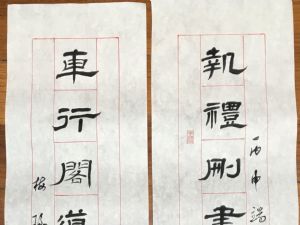 執禮剛書
丙申端
車行閣道
梅